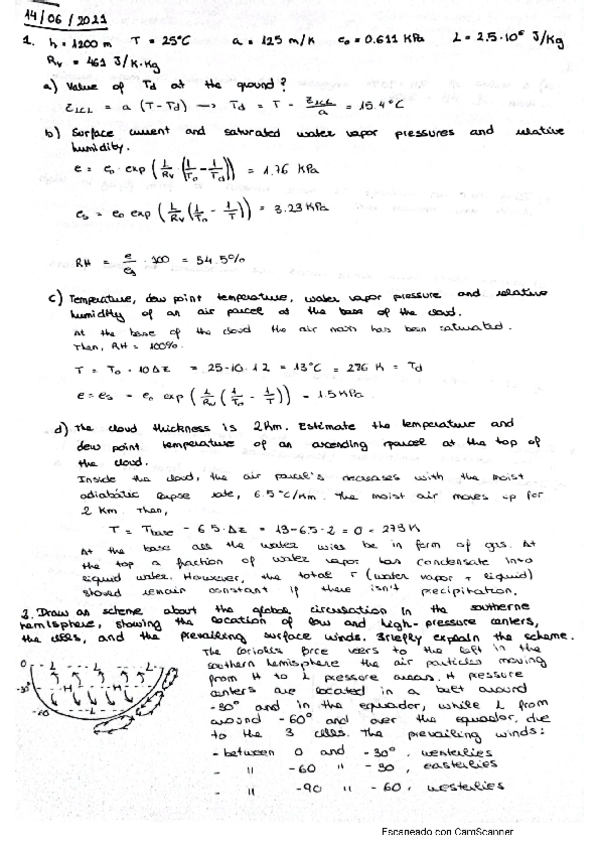 14/06/2021
1. h = 1200 m T = 25°C a = 125 m/K e₀ = 0.611 KPa L = 2.5·10⁶ J/Kg
Rᵥ = 461 J/K·Kg
a) Value of Td at the ground?
Z_LCL = a (T - Td) → Td = T - Z_LCL/a = 15.4°C
b) Surface current and saturated water vapor pressures and relative
humidity.
e = e₀ · exp (L/Rᵥ (1/T₀ - 1/Td)) = 1.76 KPa
es = e₀ exp (L/Rᵥ (1/T₀ - 1/T)) = 3.23 KPa
RH = e/es · 100 = 54.5%
c) Temperature, dew point temperature, water vapor pressure and relative
humidity of an air parcel at the base of the cloud.
At the base of the cloud the air mass has been saturated.
Then, RH = 100%.
T = T₀ - 10 Δz = 25 - 10 · 1.2 = 13°C = 276 K = Td
e = es = e₀ exp (L/Rᵥ (1/T₀ - 1/T)) = 1.5 KPa
d) The cloud thickness is 2 Km. Estimate the temperature and
dew point temperature of an ascending parcel at the top of
the cloud.
Inside the cloud, the air parcel's decreases with the moist
adiabatic lapse rate, 6.5°C/Km. The moist air moves up for
2 Km. Then,
T = Tbase - 6.5·Δz = 13 - 6.5·2 = 0 = 273 K
At the base all the water will be in form of gas. At
the top a fraction of water vapor has condensate into
liquid water. However, the total r (water vapor + liquid)
should remain constant if there isn't precipitation.
2. Draw an scheme about the global circulation in the southerne
hemisphere, showing the location of low and high-pressure centers,
the cells, and the prevailing surface winds. Briefly explain the scheme.
The Coriolis force veers to the left in the
southern hemisphere the air particles moving
from H to L pressure areas. H pressure
centers are located in a belt around
-30° and in the equador, while L from
around -60° and over the equador, due
to the 3 cells. The prevailing winds:
- between 0 and -30°, westerlies
- " -60 " -30, easterlies
- " -90 " -60, westerlies
0 L L L
-30° H H H
-60 L
Escaneado con CamScanner